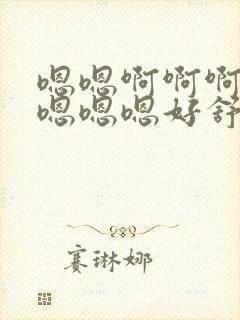 嗯嗯啊啊啊
嗯嗯嗯好舒
赛琳娜